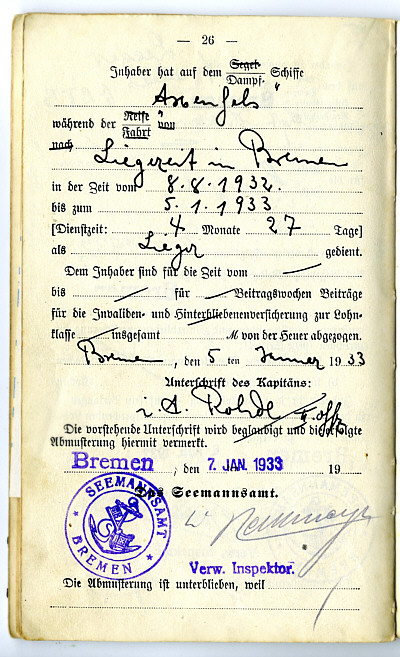 — 26 —
Inhaber hat auf dem Segel- Schiffe
Dampf-
"
während der Reise von
Fahrt
nach Liegezeit in Bremen
in der Zeit vom 8.8.1932.
bis zum 5.1.1933
[Dienstzeit: 4 Monate 27 Tage]
als Lieger gedient.
Dem Inhaber sind für die Zeit vom —
bis — für — Beitragswochen Beiträge
für die Invaliden- und Hinterbliebenenversicherung zur Lohn-
klasse insgesamt ℳ von der Heuer abgezogen.
Bremen, den 5 ten Januar 1933
Unterschrift des Kapitäns:
i.A. II. Offz
Die vorstehende Unterschrift wird beglaubigt und die erfolgte
Abmusterung hiermit vermerkt.
Bremen, den 7. JAN. 1933 19
Das Seemannsamt.
SEEMANNSAMT
BREMEN
Verw. Inspektor.
Die Abmusterung ist unterblieben, weil